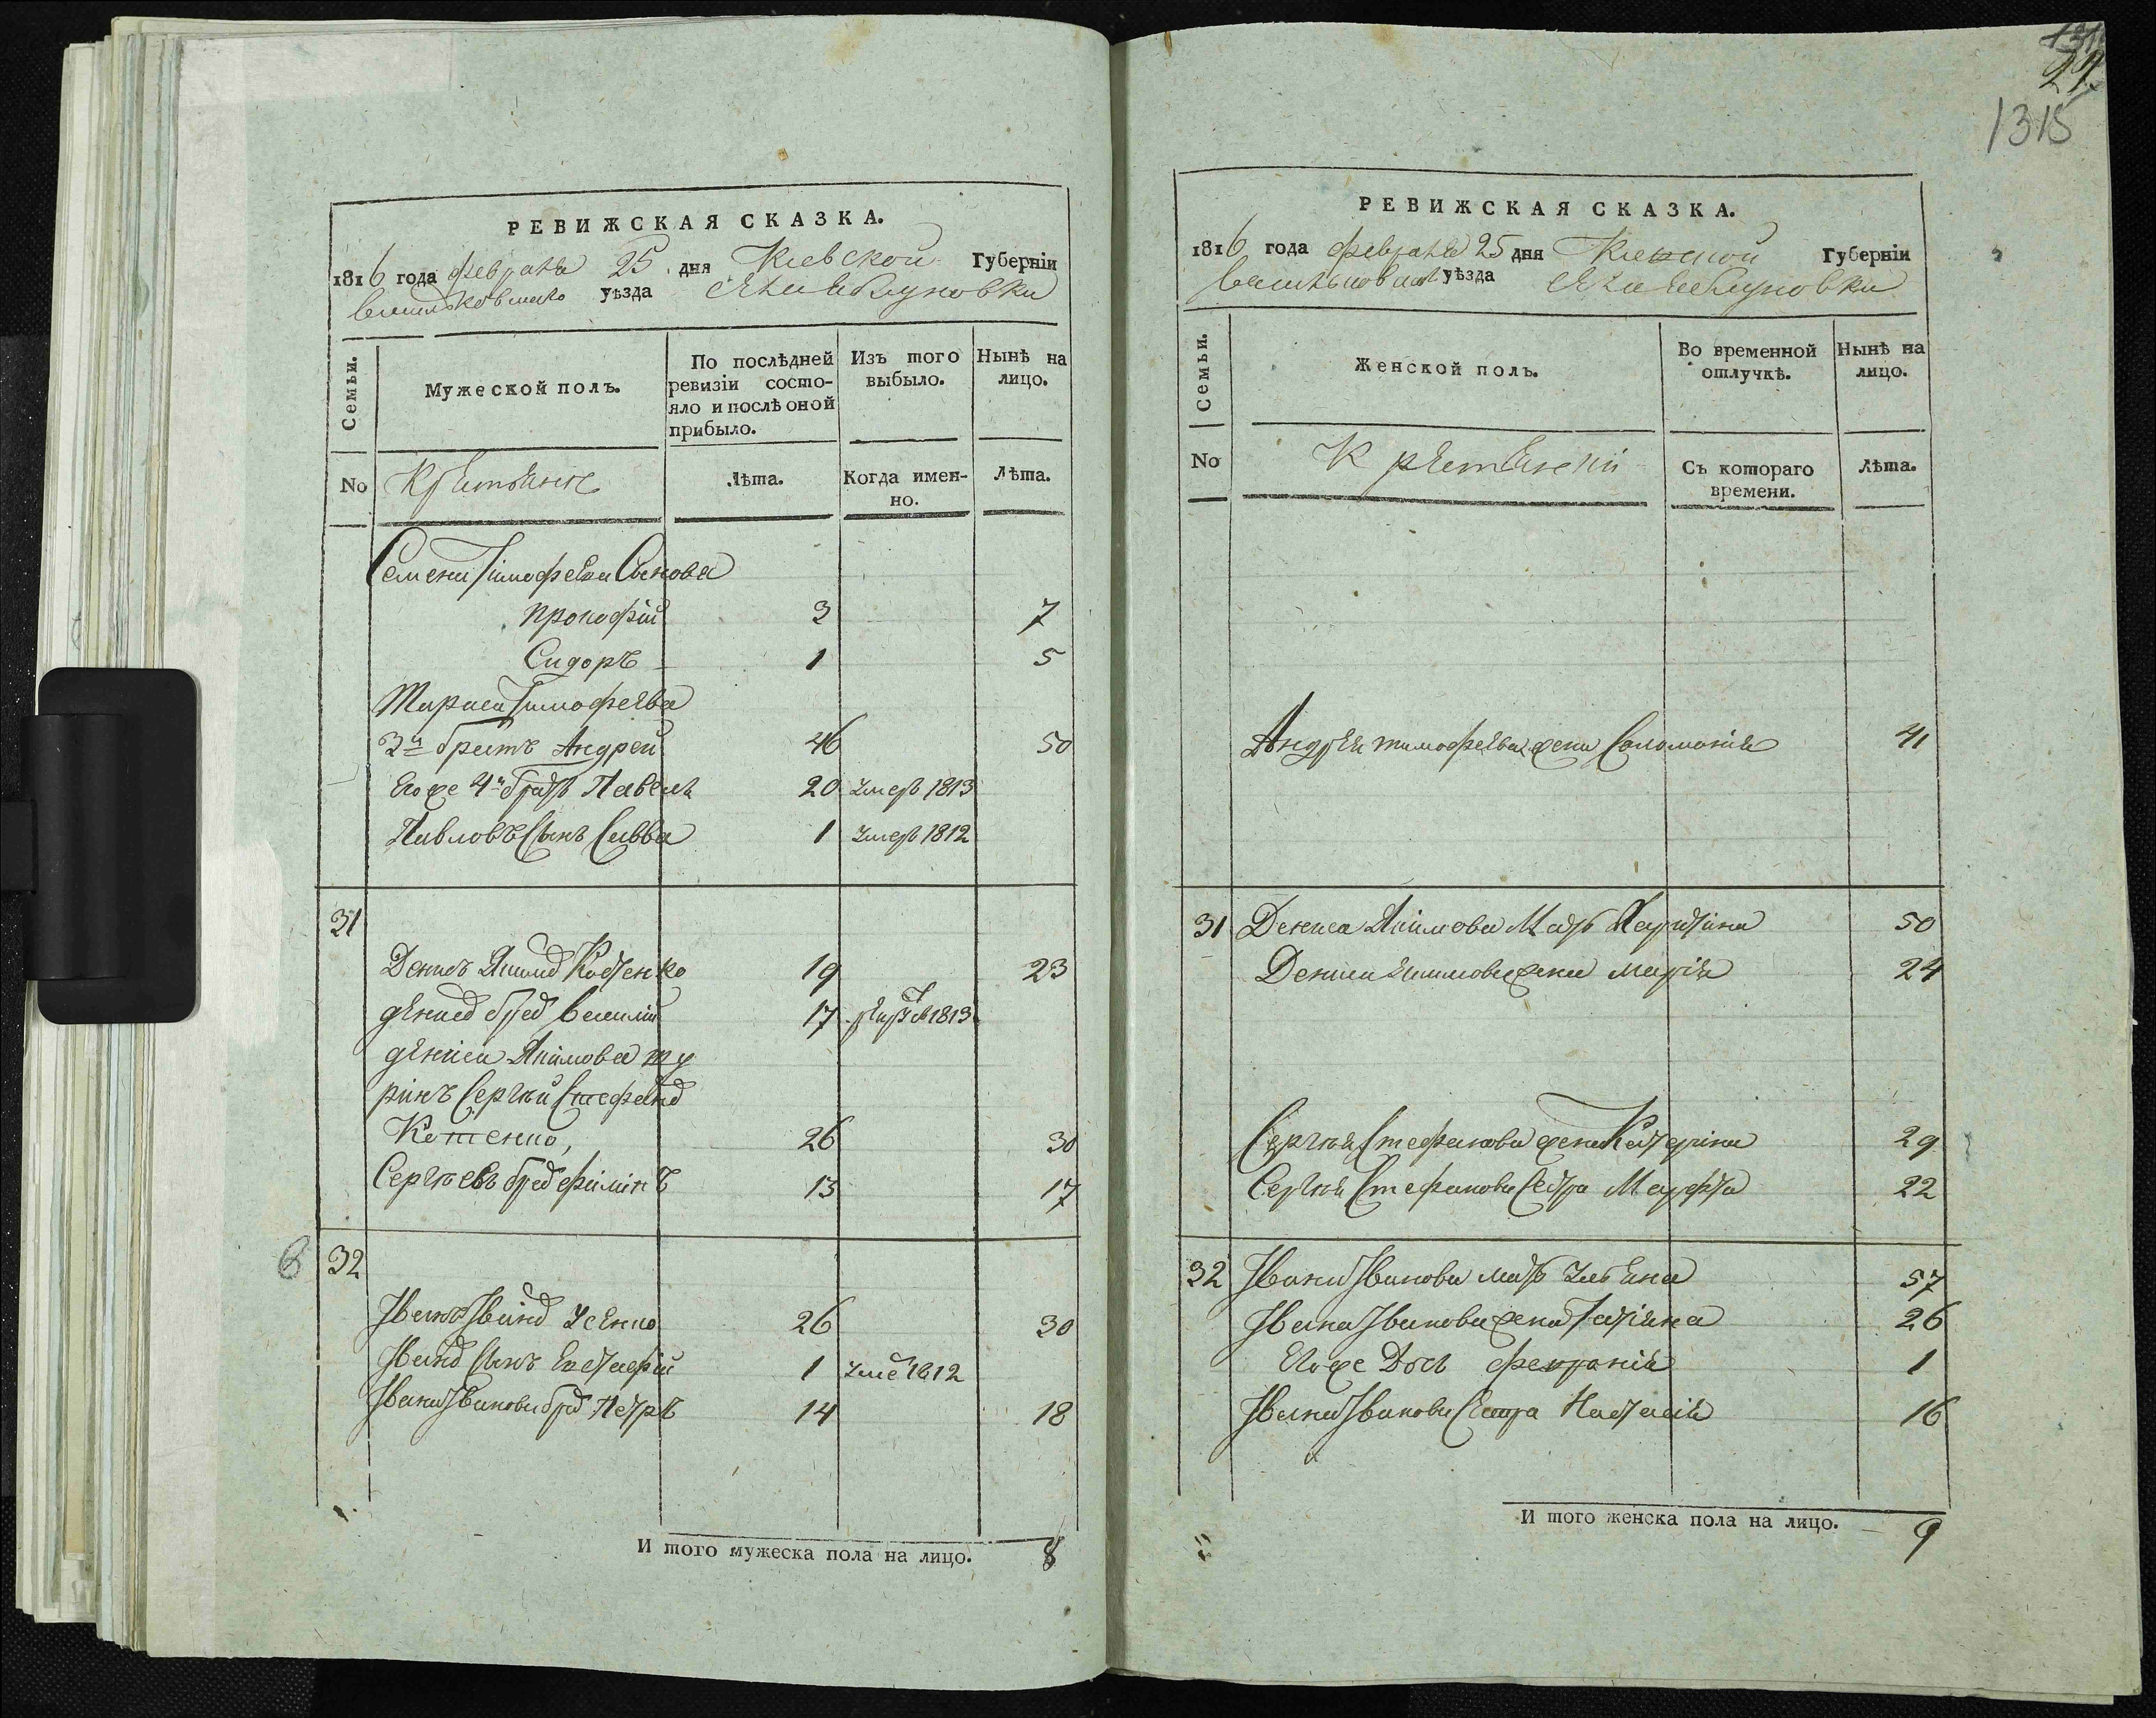 РЕВИЖСКАЯ СКАЗКА.
1816 года февраля 25 дня Киевской Губернїи
васильковскаго уѣзда села Яблуновки
Семьи.
Мужеской полъ.
По послѣдней ревизїи состо-
яло и послѣ оной
прибыло.
Изъ того
выбыло.
Нынѣ на
лицо.
No
Крестьяне
Лѣта.
Когда имен-
но.
Лѣта.
Семена Тимофеева Сынова
прокофій 3 7
Сидоръ 1 5
Тараса Тимофеева
3й братъ Андрей 46 50
Его же 4й братъ Павелъ 20 умеръ 1813
Павловъ Сынъ Савва 1 умеръ 1812
31
Денисъ Якимовъ Костенко 19 23
денисовъ братъ василій 17 рекрут 1813
дениса Якимова шу
ринъ Сергѣй Стефановъ
Котенко, 26 30
Сергѣевъ братъ филипъ 13 17
32
Иванъ Ивановъ Усенко 26 30
Ивановъ Сынъ Евстафій 1 умер 1812
Ивана Иванова братъ Петръ 14 18
И того мужеска пола на лицо. 8
1315
РЕВИЖСКАЯ СКАЗКА.
1816 года февраля 25 дня Киевской Губернїи
васильковскаго уѣзда села Яблуновки
Семьи.
Женской полъ.
Во временной
отлучкѣ.
Нынѣ на
лицо.
No
Съ котораго
времени.
Лѣта.
Андрея тимофеева жена Соломонія 41
31 Дениса Якимова Мать 50
Дениса Якимова жена марія 24
Сергѣя Стефанова жена Катерина 29
Сергѣя Стефанова Сестра Марфа 22
32 Ивана Иванова мать Ульяна 57
Ивана Иванова жена Татіяна 26
Его же Дочь 1
Ивана Иванова Сестра Настасія 16
И того женска пола на лицо. 9